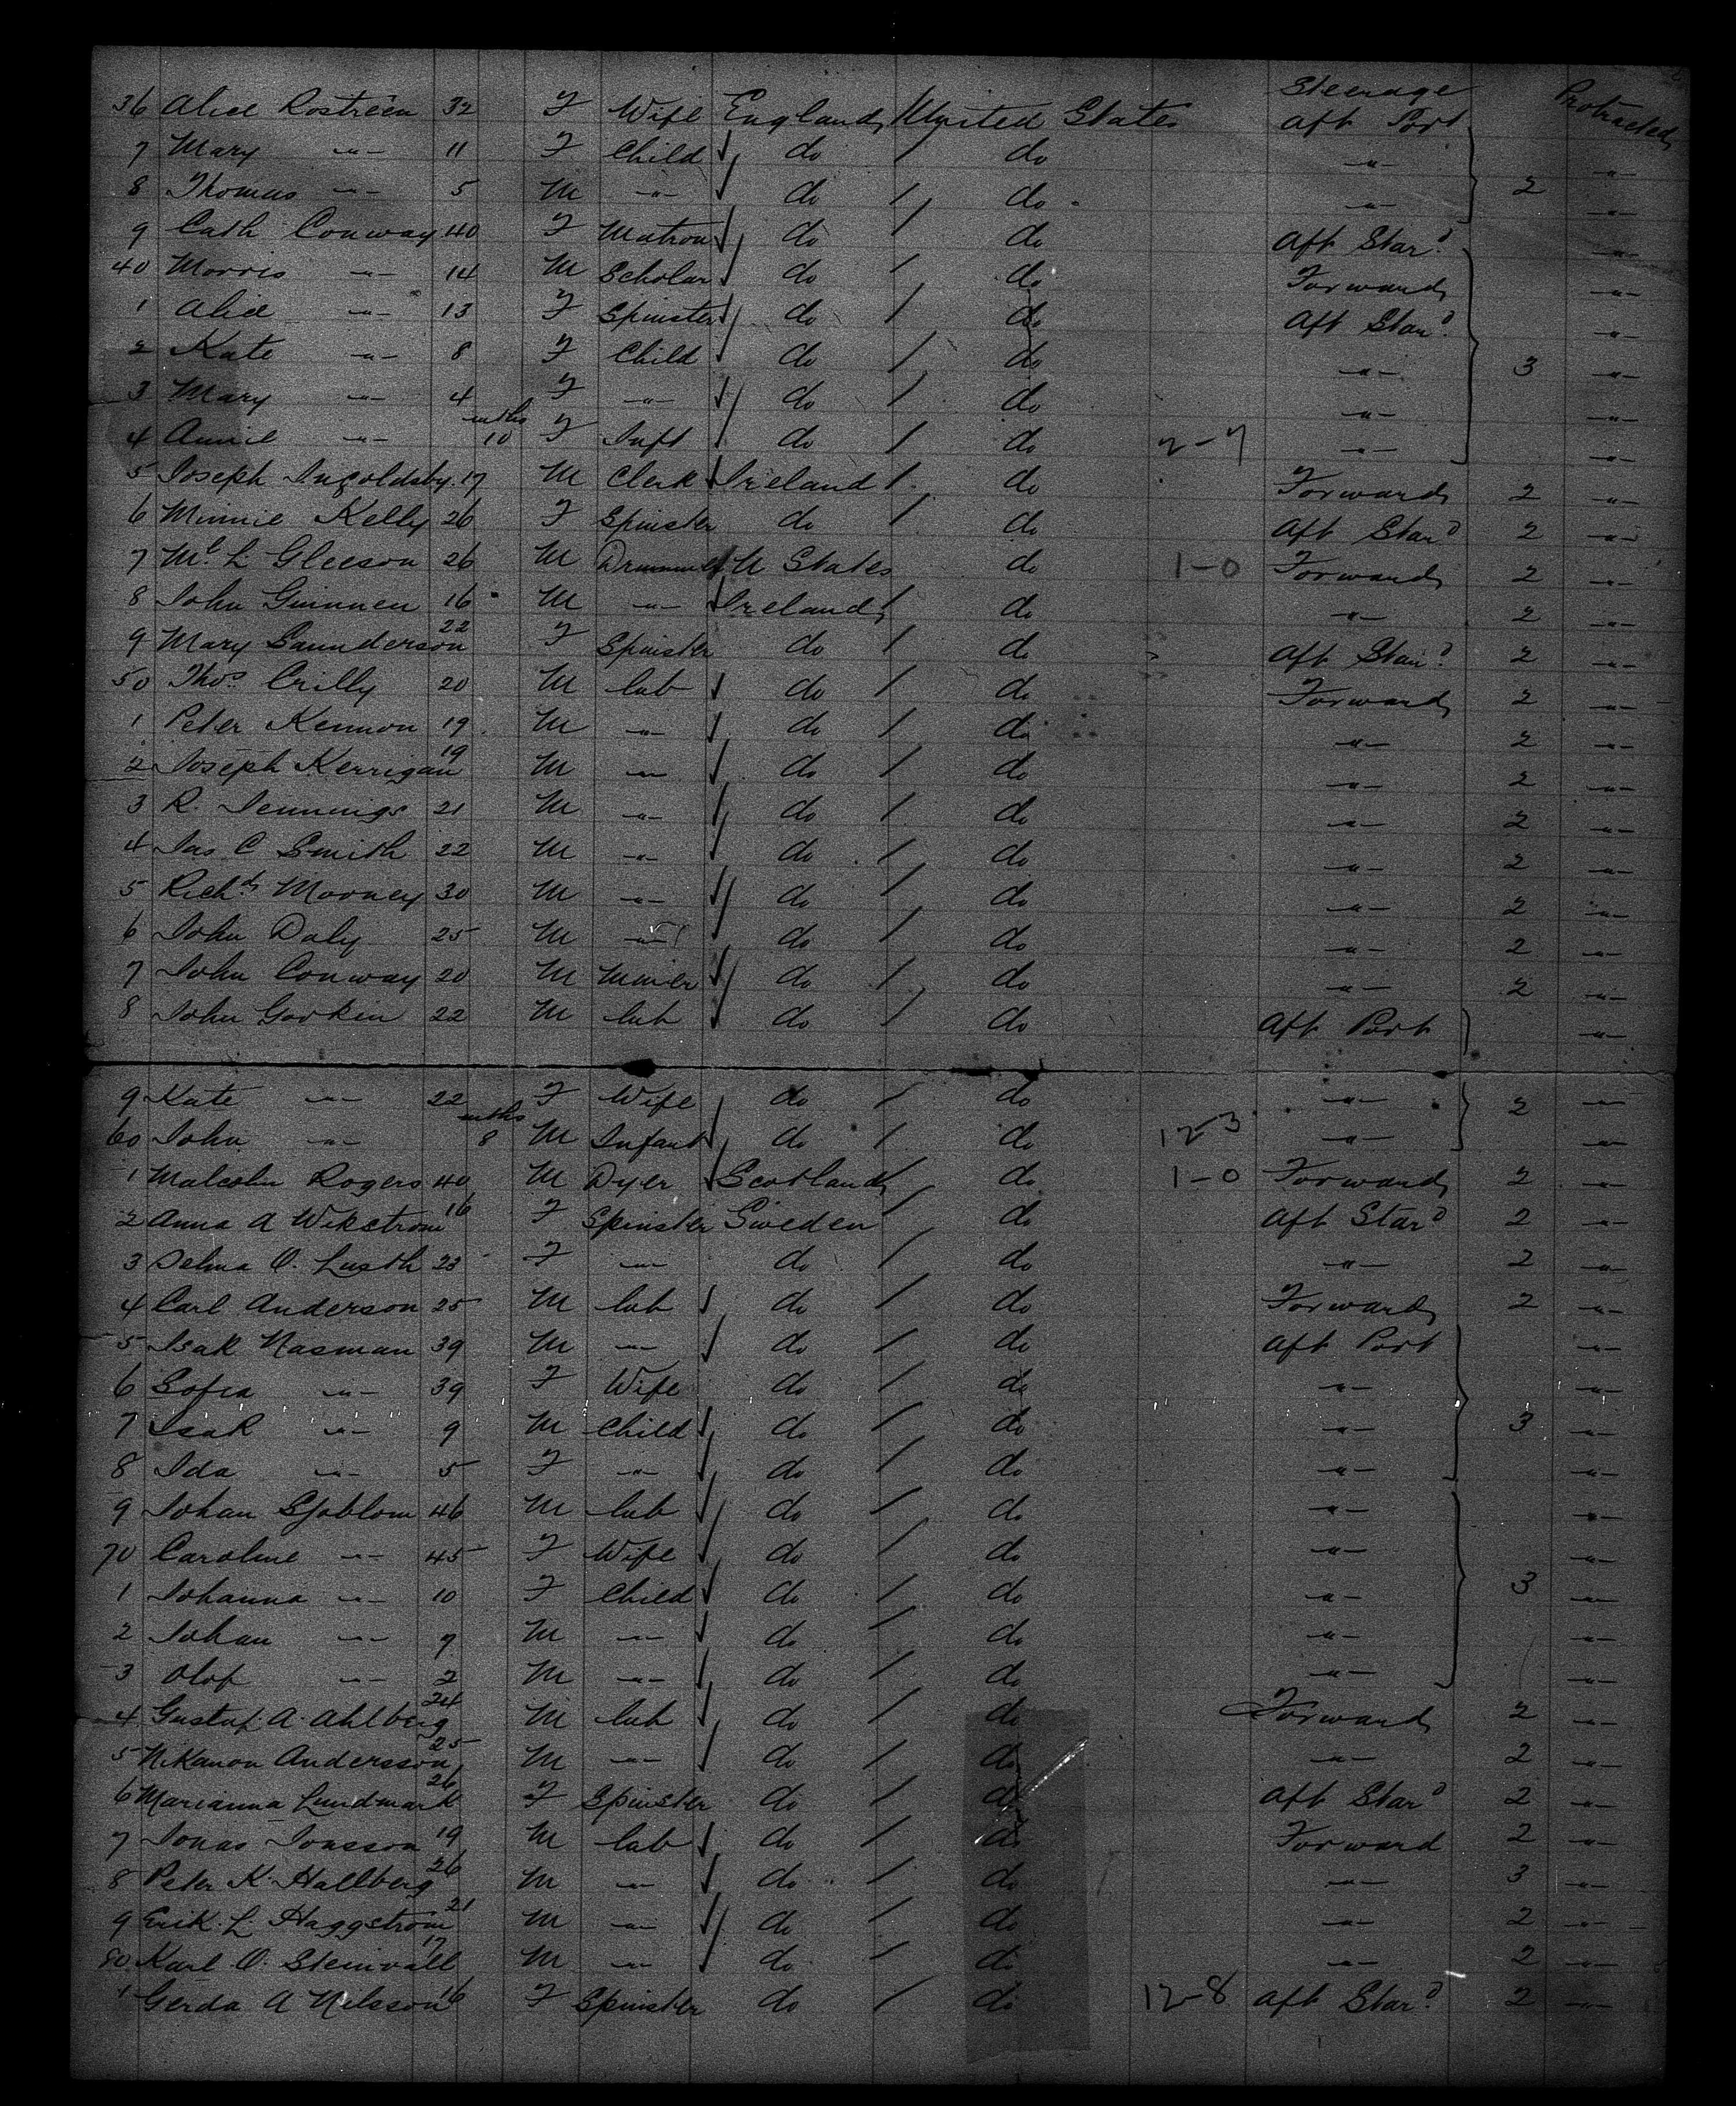 Steerage Protracted
36 Alice Rostreen 32 F Wife England United States Aft Port
7 Mary -"- 11 F Child do do -"- -"-
8 Thomas -"- 5 M -"- do do -"- 2 -"-
9 Cath Conway 40 F Matron do do Aft Starᵈ -"-
40 Morris -"- 14 M Scholar do do Forward -"-
1 Alice -"- 13 F Spinster do do Aft Starᵈ -"-
2 Kate -"- 8 F Child do do -"- 3 -"-
3 Mary -"- 4 F -"- do do -"- -"-
4 Annie -"- mths 10 F Inft do do 2-7 -"- -"-
5 Joseph Ingoldsby 17 M Clerk Ireland do Forward 2 -"-
6 Minnie Kelly 26 F Spinster do do Aft Starᵈ 2 -"-
7 Mˡ L Gleeson 26 M Drummer U States do 1-0 Forward 2 -"-
8 John Guinnen 16 M -"- Ireland do -"- 2 -"-
9 Mary Saunderson 22 F Spinster do do Aft Starᵈ 2 -"-
50 Thoˢ Crilly 20 M lab do do Forward 2 -"-
1 Peter Kennon 19 M -"- do do -"- 2 -"-
2 Joseph Kerrigan 19 M -"- do do -"- 2 -"-
3 R. Jennings 21 M -"- do do -"- 2 -"-
4 Jas C Smith 22 M -"- do do -"- 2 -"-
5 Richᵈ Mooney 30 M -"- do do -"- 2 -"-
6 John Daly 25 M -"- do do -"- 2 -"-
7 John Conway 20 M Miner do do -"- 2 -"-
8 John Gorkin 22 M lab do do Aft Port -"-
9 Kate -"- 22 F Wife do do -"- 2 -"-
60 John -"- mths 8 M Infant do do 12-3 -"- -"-
1 Malcolm Rogers 40 M Dyer Scotland do 1-0 Forward 2 -"-
2 Anna A Wikstrom 16 F Spinster Sweden do Aft Starᵈ 2 -"-
3 Selma O. Lusth 23 F -"- do do -"- 2 -"-
4 Carl Anderson 25 M lab do do Forward 2 -"-
5 Isak Nasman 39 M -"- do do Aft Port -"-
6 Sofia -"- 39 F Wife do do -"- -"-
7 Isak -"- 9 M Child do do -"- 3 -"-
8 Ida -"- 5 F -"- do do -"- -"-
9 Johan Sjoblom 46 M lab do do -"- -"-
70 Caroline -"- 45 F Wife do do -"- -"-
1 Johanna -"- 10 F Child do do -"- 3 -"-
2 Johan -"- 7 M -"- do do -"- -"-
3 Olof -"- 2 M -"- do do -"- -"-
4 Gustaf A. Ahlberg 24 M lab do do Forward 2 -"-
5 Nikanon Andersson 25 M -"- do do -"- 2 -"-
6 Marianna Lundmark 26 F Spinster do do Aft Starᵈ 2 -"-
7 Jonas Jonsson 19 M lab do do Forward 2 -"-
8 Peter K. Hallberg 26 M -"- do do -"- 3 -"-
9 Erik L. Haggstrom 21 M -"- do do -"- 2 -"-
80 Karl O. Steinvall 17 M -"- do do -"- 2 -"-
1 Gerda A Nilsson 16 F Spinster do do 12-8 Aft Starᵈ 2 -"-